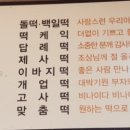 돌떡·백일떡 사랑스런 우리아
떡케익 더없이 기쁘고
답례떡 소중한 분께 감사
제사떡 조상님께 정성
이바지떡 좋은 사람 만나
개업떡 대박기원
고사떡 비나이다 비나이
맞춤떡 원하는 떡으로